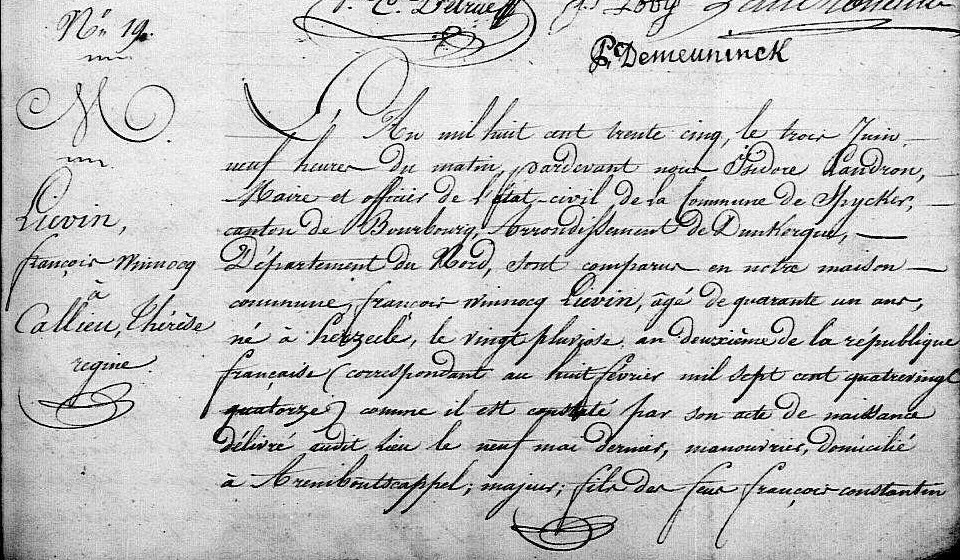 P. C. Debruef J. Loby
P. Demeuninck
N° 19.
M
Liévin,
françois Winnocq
à
Callieu, thérèse
régine
An mil huit cent trente cinq, le trois Juin
neuf heures du matin, pardevant nous Isidore Landron,
Maire et officier de l'état-civil de la Commune de Spycker,
canton de Bourbourg, Arrondissement de Dunkerque,
Département du Nord, sont comparus en notre maison
commune, françois winnocq Liévin, âgé de quarante un ans,
né à herzeele, le vingt pluviose an deuxième de la république
française (correspondant au huit février mil sept cent quatrevingt
quatorze) comme il est constaté par son acte de naissance
délivré audit lieu le neuf mai dernier, manouvrier, domicilié
à Arembouts-cappel; majeur; fils des feus françois constantin